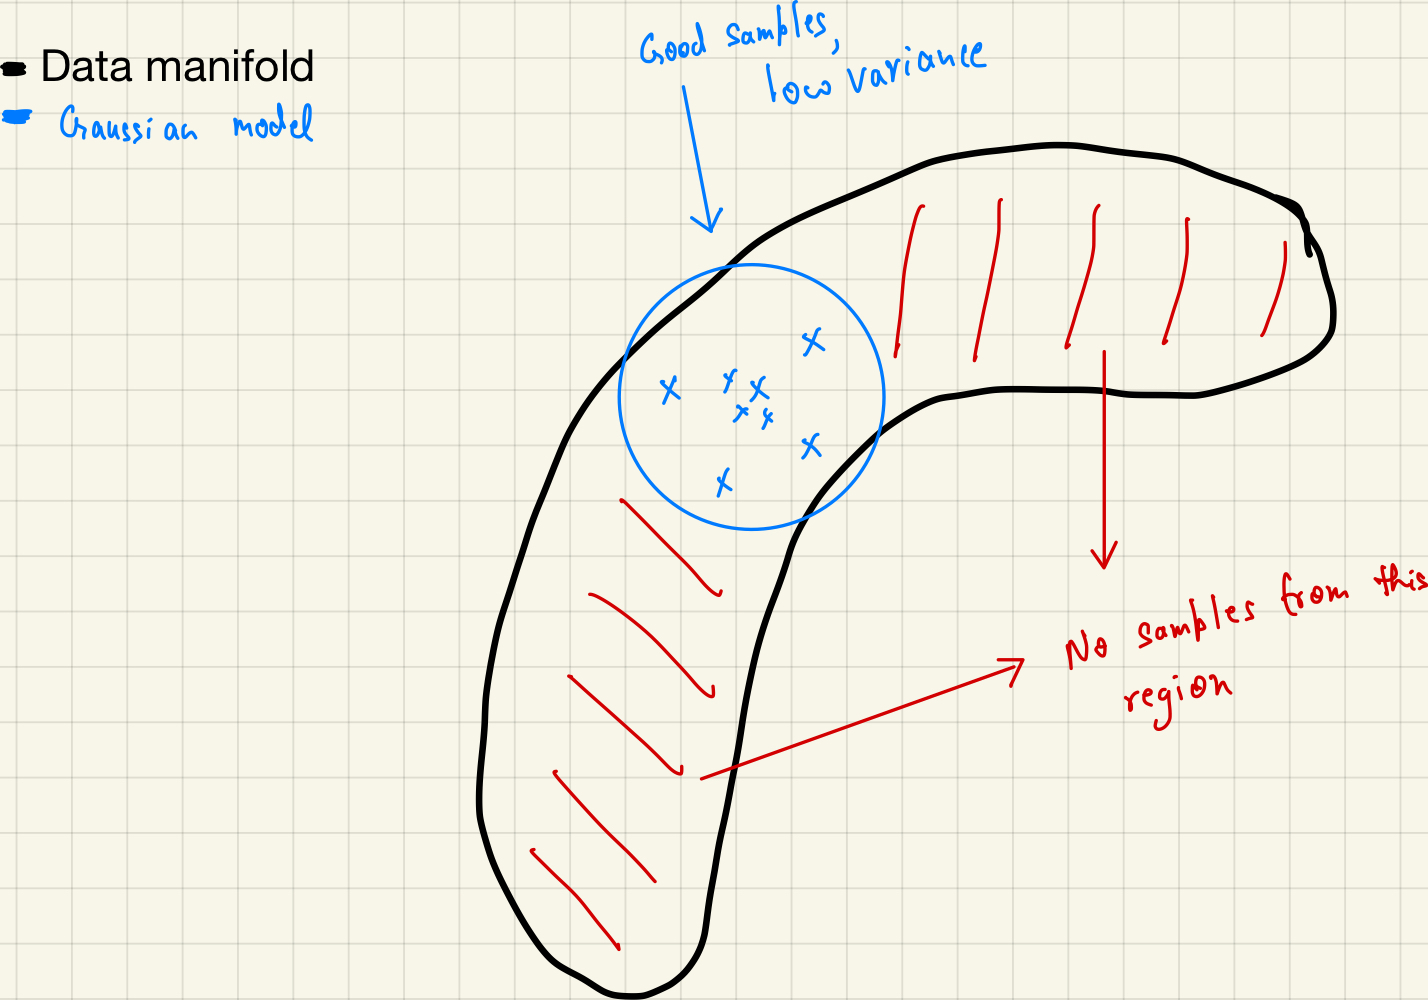 Data manifold
Gaussian model
Good samples,
low variance
No samples from this
region